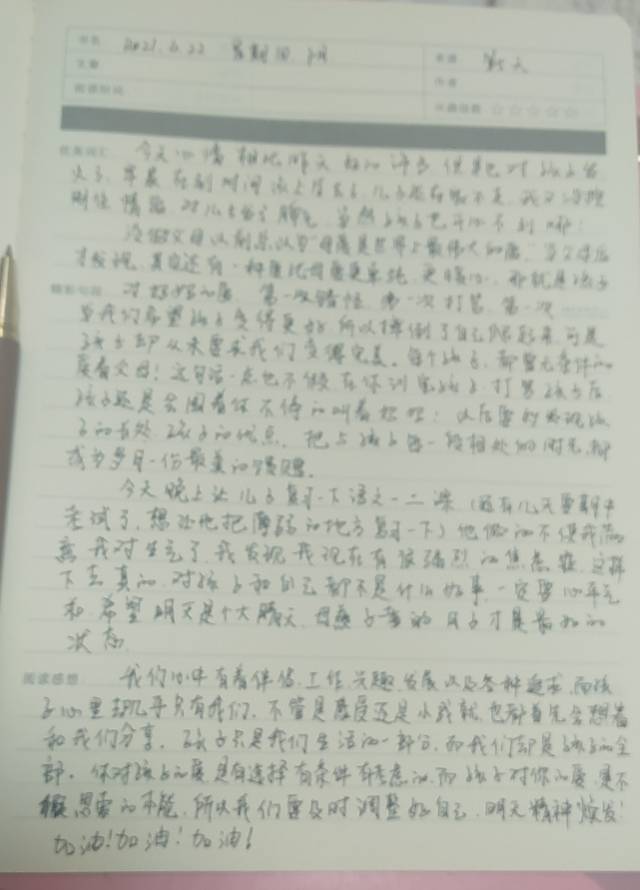 书名 2021.6.22 星期四 阴
文章
阅读时间
来源 新天
作者
兴趣指数 ☆☆☆☆☆
优美词汇 今天心情相比昨天好的许多 但是 对孩子发
火了, 早晨 时间 上 儿子还在 我又没控
制住情绪, 对儿子发了脾气, 当然孩子也开心不到哪!
没做父母以前总以为"母爱是世界上最伟大的爱",当了父母后
才发现, 其实还有一种爱比母爱更单纯, 更暖心, 那就是孩子
精彩句段 对妈妈的爱, 第一次 第一次打骂, 第一次
我们希望孩子变得更好 所以 了自己 可是
孩子却从未要求我们变得完美。每个孩子, 都无条件的
爱着父母! 这句话一点也不假 在你训完孩子 打骂孩子后
孩子还是会围着你不停的叫着妈妈! 以后要 发现孩
子的长处 孩子的优点, 把与孩子每一段相处的时光, 都
成为岁月一份最美的馈赠。
今天晚上让儿子复习一下语文一二课 (还有几天要期末
考试了, 想让他把薄弱的地方复习一下) 他做的不使我满
意 我对 生气了 我发现我现在有很强烈的焦虑症, 这样
下去真的 对孩子和自己都不是什么好事, 一定要心平气
和 希望明天是个大晴天, 母慈子孝的日子才是最好的
状态
阅读感想 我们心中有着伴侣、工作、兴趣、发展以及各种追求, 而孩
子心里却几乎只有我们, 不管是 还是小成就, 也都首先会想着
和我们分享, 孩子只是我们生活的一部分, 而我们却是孩子的全
部, 你对孩子的爱是有选择 有条件 有考虑的, 而孩子对你的爱, 是不
假思索的本能, 所以我们要及时调整好自己, 明天精神焕发!
加油! 加油! 加油!